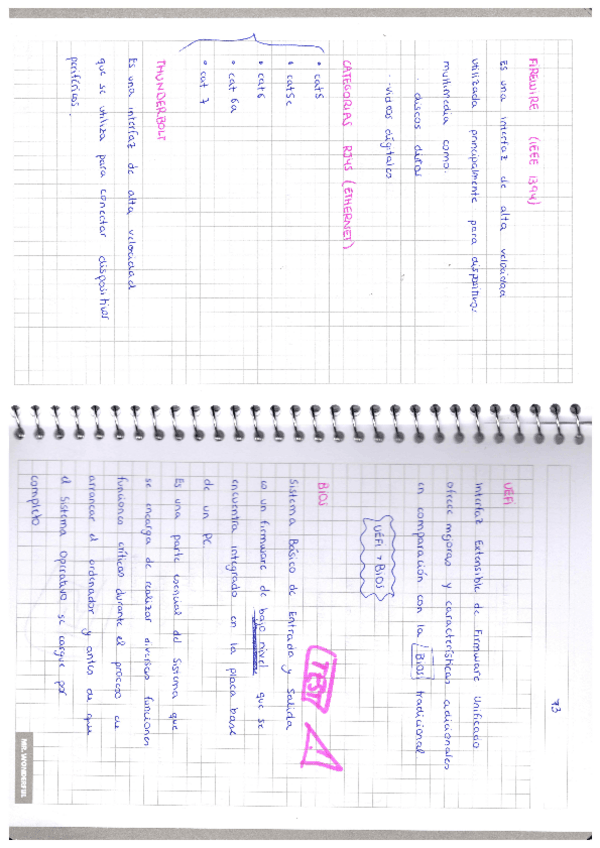 FIREWIRE (IEEE 1394)
Es una interfaz de alta velocidad
utilizada principalmente para dispositivos
multimedia como.
· discos duros
· videos digitales
CATEGORIAS RJ45 (ETHERNET)
• cat5
• cat5e
• cat6
• cat 6a
• cat 7
THUNDERBOLT
Es una interfaz de alta velocidad
que se utiliza para conectar dispositivos
periféricos.
73
UEFI
Interfaz Extensible de Firmware Unificado
ofrece mejoras y características adicionales
en comparación con la BIOS tradicional
UEFI > BIOS
BIOS
Sistema Básico de Entrada y Salida
TEST
es un firmware de bajo nivel que se
encuentra integrado en la placa base
de un PC.
Es una parte esencial del Sistema que
se encarga de realizar diversas funciones
funciones críticas durante el proceso de
arrancar el ordenador y antes de que
el Sistema Operativo se cargue por
completo
MR. WONDERFUL